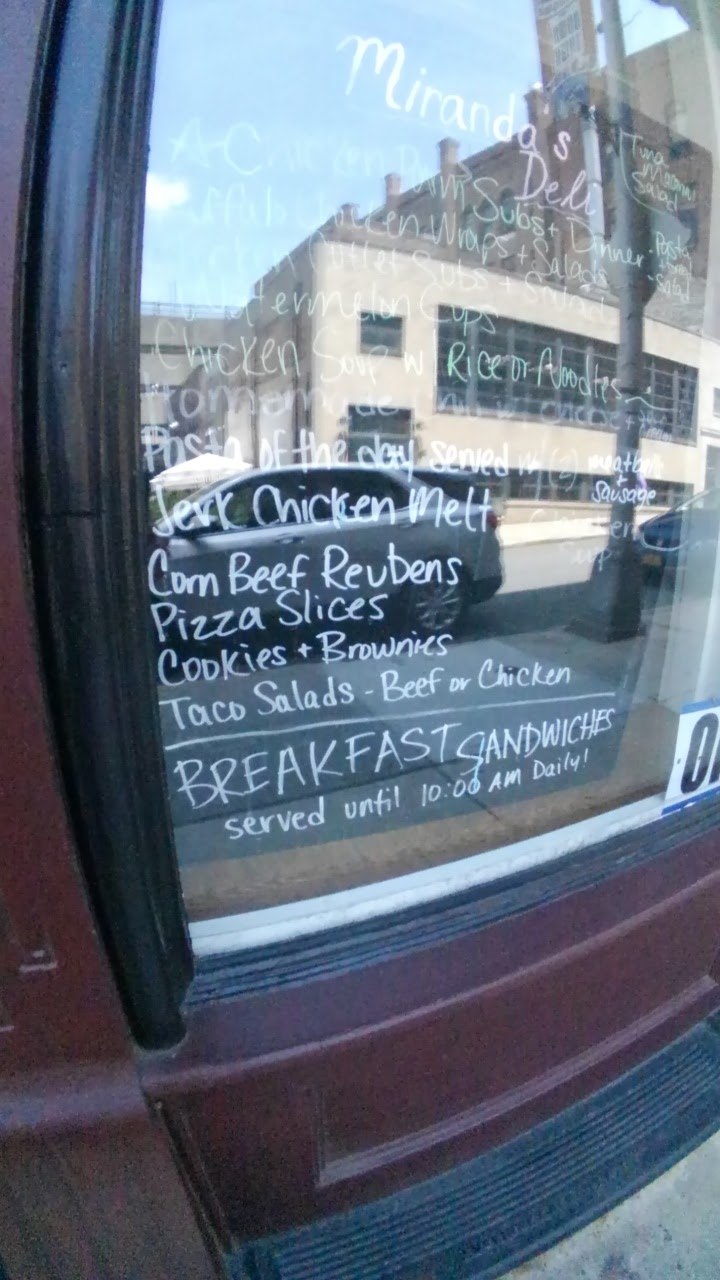 Miranda's
Deli
Chicken Parm Subs + Dinner
Chicken Wraps + Salads
Cutlet Subs + Salad
Watermelon Cups
Chicken Soup w Rice or Noodles
Homemade
Pasta of the day served w/ (2) meatballs
+
sausage
Jerk Chicken Melt
Chicken
Corn Beef Reubens
Pizza Slices
Cookies + Brownies
Taco Salads - Beef or Chicken
BREAKFAST SANDWICHES
served until 10:00 AM Daily!
Tuna
Macaroni
Salad
Pasta
Salad